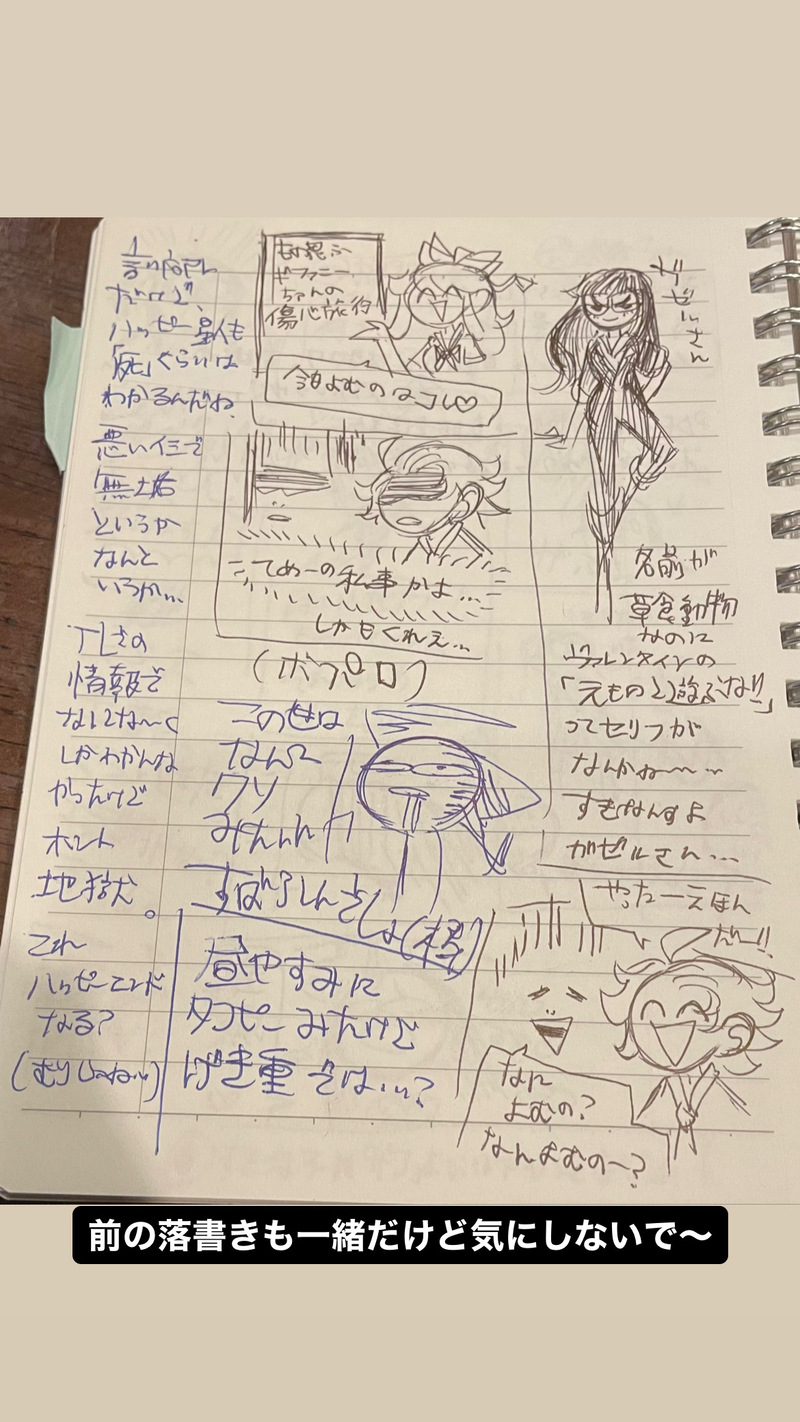 だけど、
ハッピー星人も
「死」ぐらいは
わかるんだね
悪いイミで
無垢
というか
なんと
いうか…
情報で
しかわかんな
かったけど
ホント
地獄。
これ
ハッピーエンド
なる?
(むりじゃね…)
ちゃんの
傷心旅行
今日よむのはコレ♡
てめーの私事かよ…
しかもくれえ…
この世は
なんて
クソ
みたいに
すばらしんでしょ(裸)
昼やすみに
タコピーみたけど
げき重では…?
ガゼルさん
名前が
草食動物
なのに
ヴァレンタインの
「えものと遊ぶな!!」
ってセリフが
なんかね〜…
すきなんすよ
ガゼルさん…
やったーえほん
だー!!
なに
よむの?
なんよむの〜?
前の落書きも一緒だけど気にしないで〜